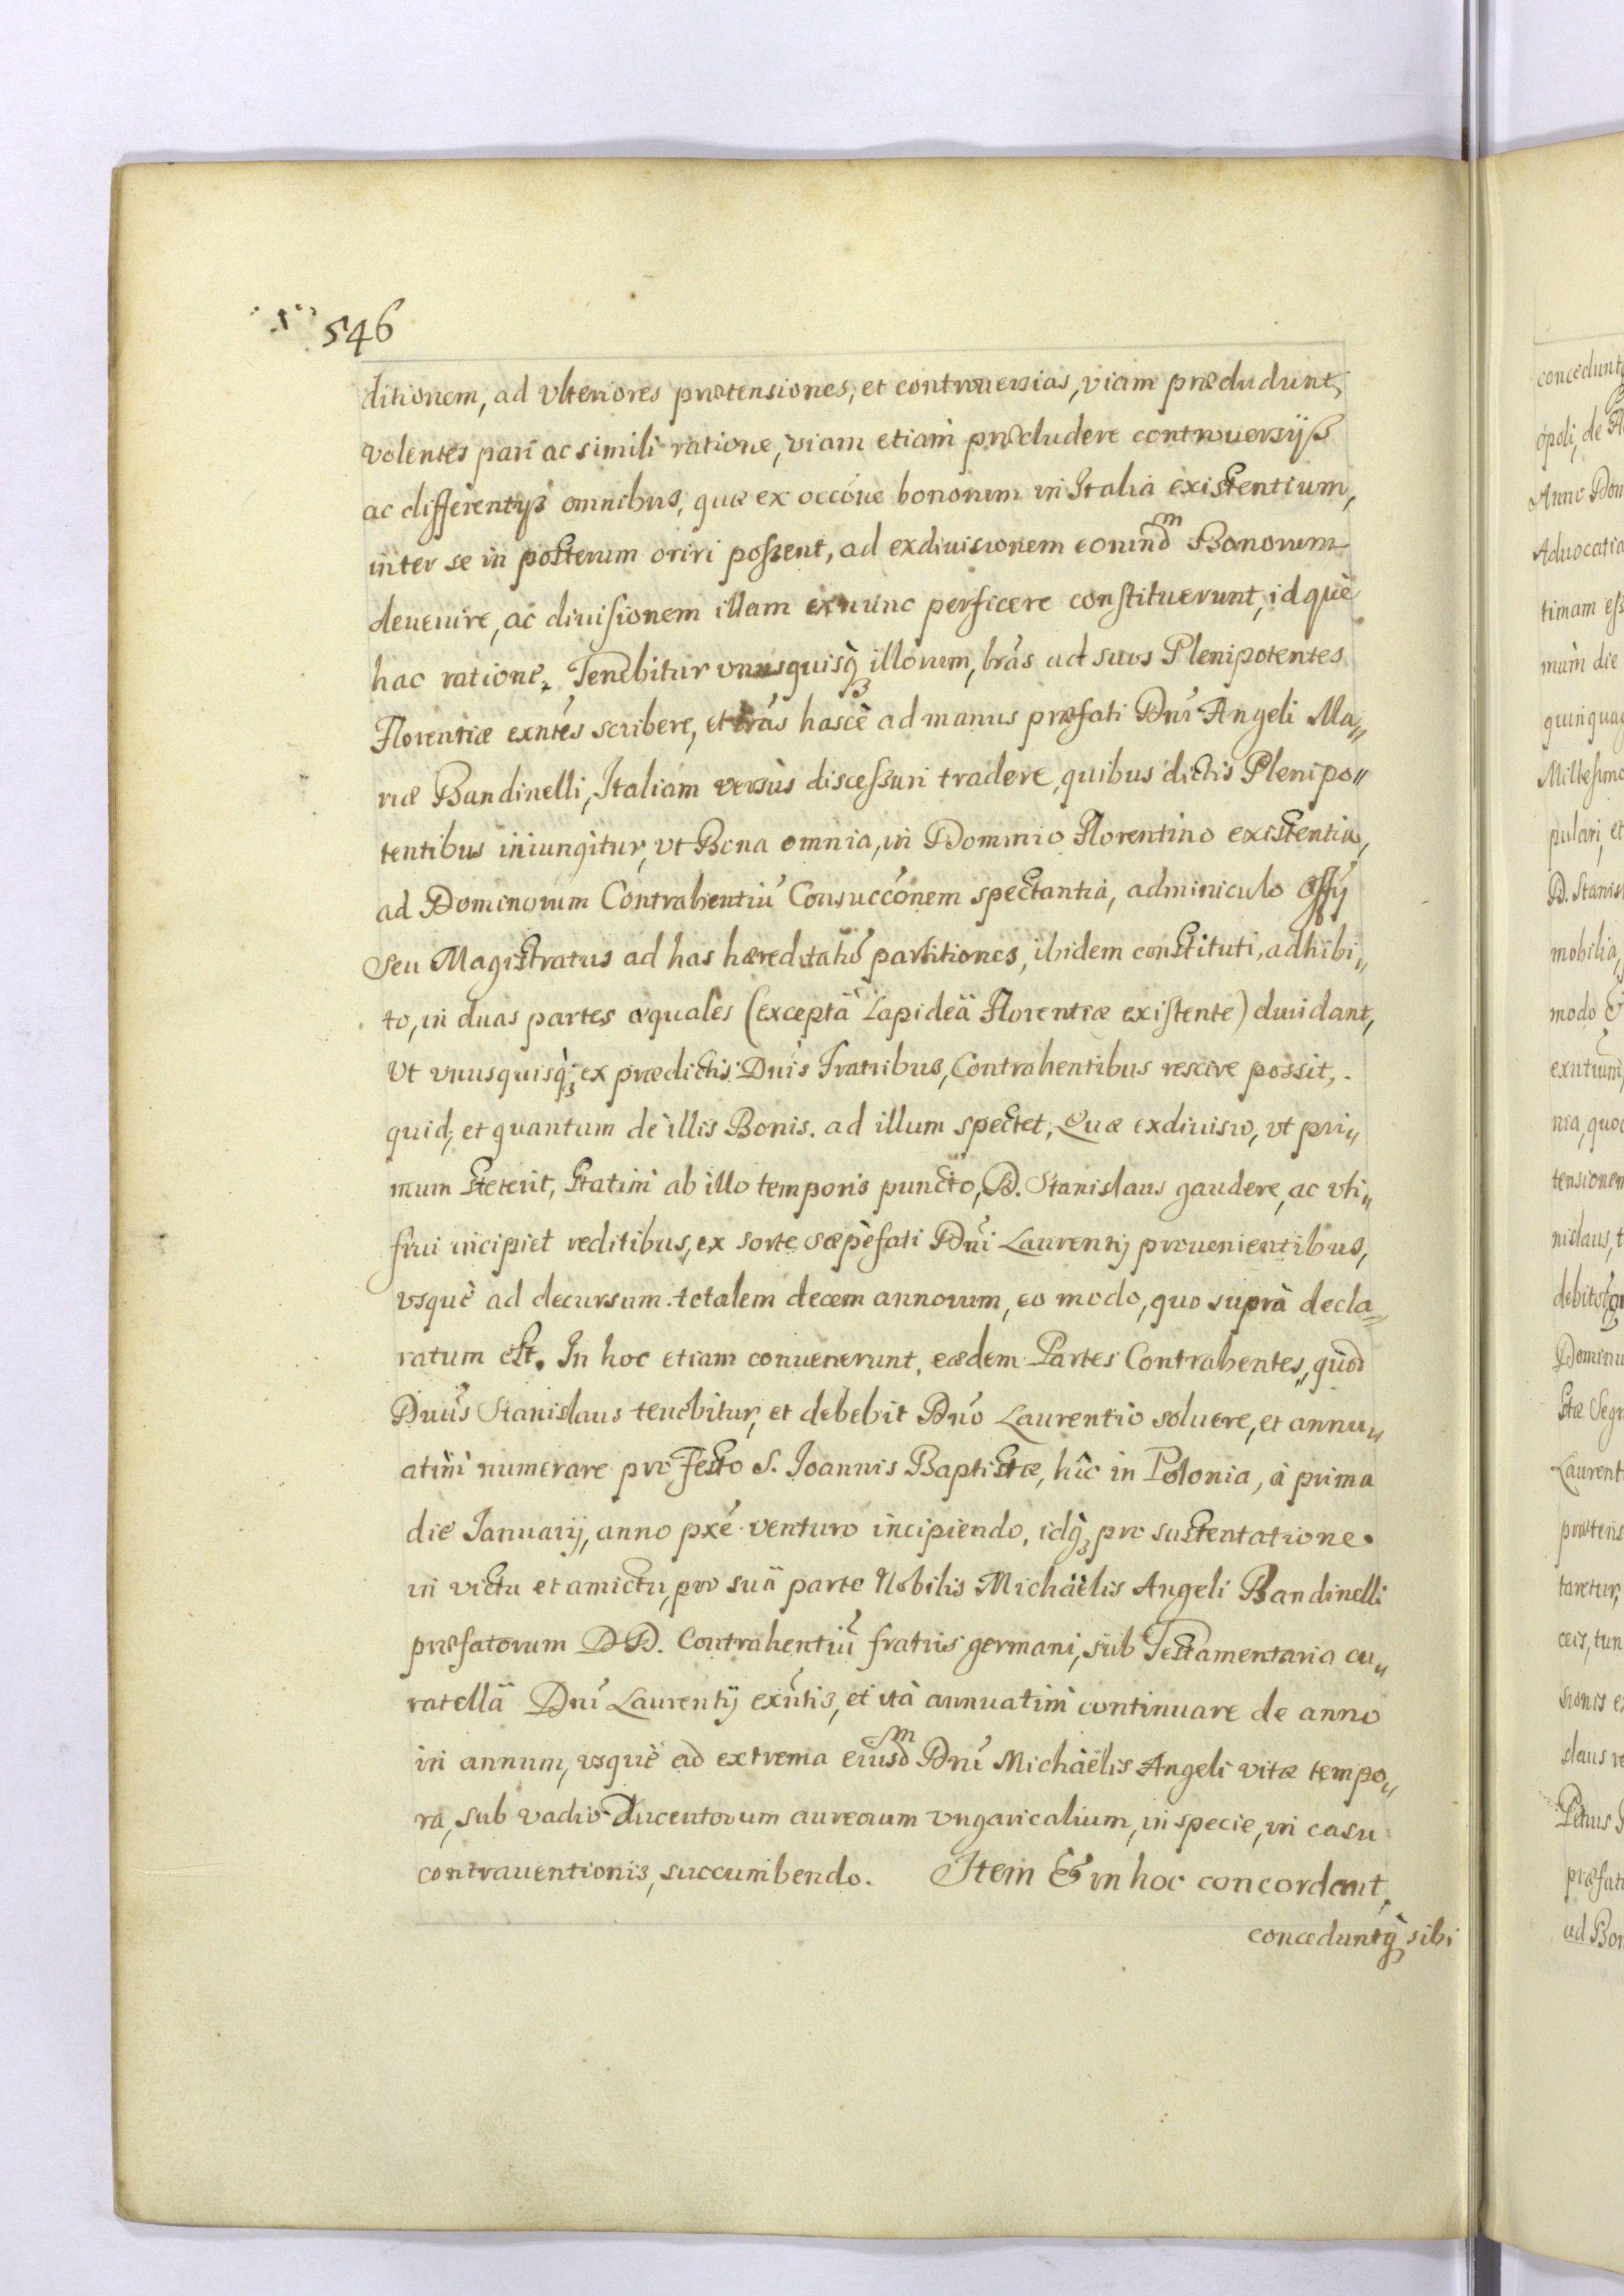 546
ditionem, ad vlteriores prætensiones, et controuersias, viam præcludunt,
volentes pari ac simili ratione, viam etiam præcludere controuersijß
ac differentijß omnibus, quæ ex occōne bonorum in Italia existentium,
inter se in posterum oriri poßent, ad exdiuisionem eorund̄m Bonorum
deuenire, ac diuisionem illam exnunc perficere constituerunt, idquè
hac ratione. Tenebitur vnusquisq̀ȝ illorum, lr̄as ad suos Plenipotentes
Florentiæ exn̄tes scribere, et lr̄as hascè ad manus præfati Dn̄i Angeli Ma„
riæ Bandinelli, Italiam versùs discessuri tradere, quibus dictis Plenipo„
tentibus iniungitur, vt Bona omnia, in Dominio Florentino existentia,
ad Dominorum Contrahentiū Consuccōnem spectantia, adminiculo Offij
seu Magistratus ad has hæreditatū partitiones, ibidem constituti, adhibi„
to, in duas partes æquales (exceptâ Lapideâ Florentiæ existente) diuidant,
Vt vnusquisq̀ȝ ex prædictis Dn̄is Fratribus, Contrahentibus rescire possit,
quid, et quantum de illis Bonis. ad illum spectet, Quæ exdiuisio, vt pri„
mum steterit, statim ab illo temporis puncto, D. Stanislaus gaudere, ac vti„
frui incipiet reditibus, ex sorte sæpèfati Dn̄i Laurentij prouenientibus,
vsquè ad decursum totalem decem annorum, eo modo, quo suprà decla„
ratum est. In hoc etiam conuenerunt, eædem Partes Contrahentes, quòd
Dn̄us Stanislaus tenebitur, et debebit Dn̄o Laurentio soluere, et annu„
atim numerare pro Festo S. Joannis Baptistæ, hîc in Polonia, à prima
die Januarij, anno pxē venturo incipiendo, idq̀ȝ pro sustentatione
in victu et amictu, pro suâ parte Nobilis Michaëlis Angeli Bandinelli
præfatorum DD. Contrahentiū fratris germani, sub Testamentaria cu„
ratellâ Dn̄i Laurentij exn̄tis, et ità annuatim continuare de anno
in annum, vsquè ad extrema eiusd̄m Dn̄i Michaëlis Angeli vitæ tempo„
ra, sub vadio Ducentorum aureorum vngaricalium, in specie, in casu
contrauentionis, succumbendo. Item & in hoc concordant,
conceduntq̀ȝ sibi